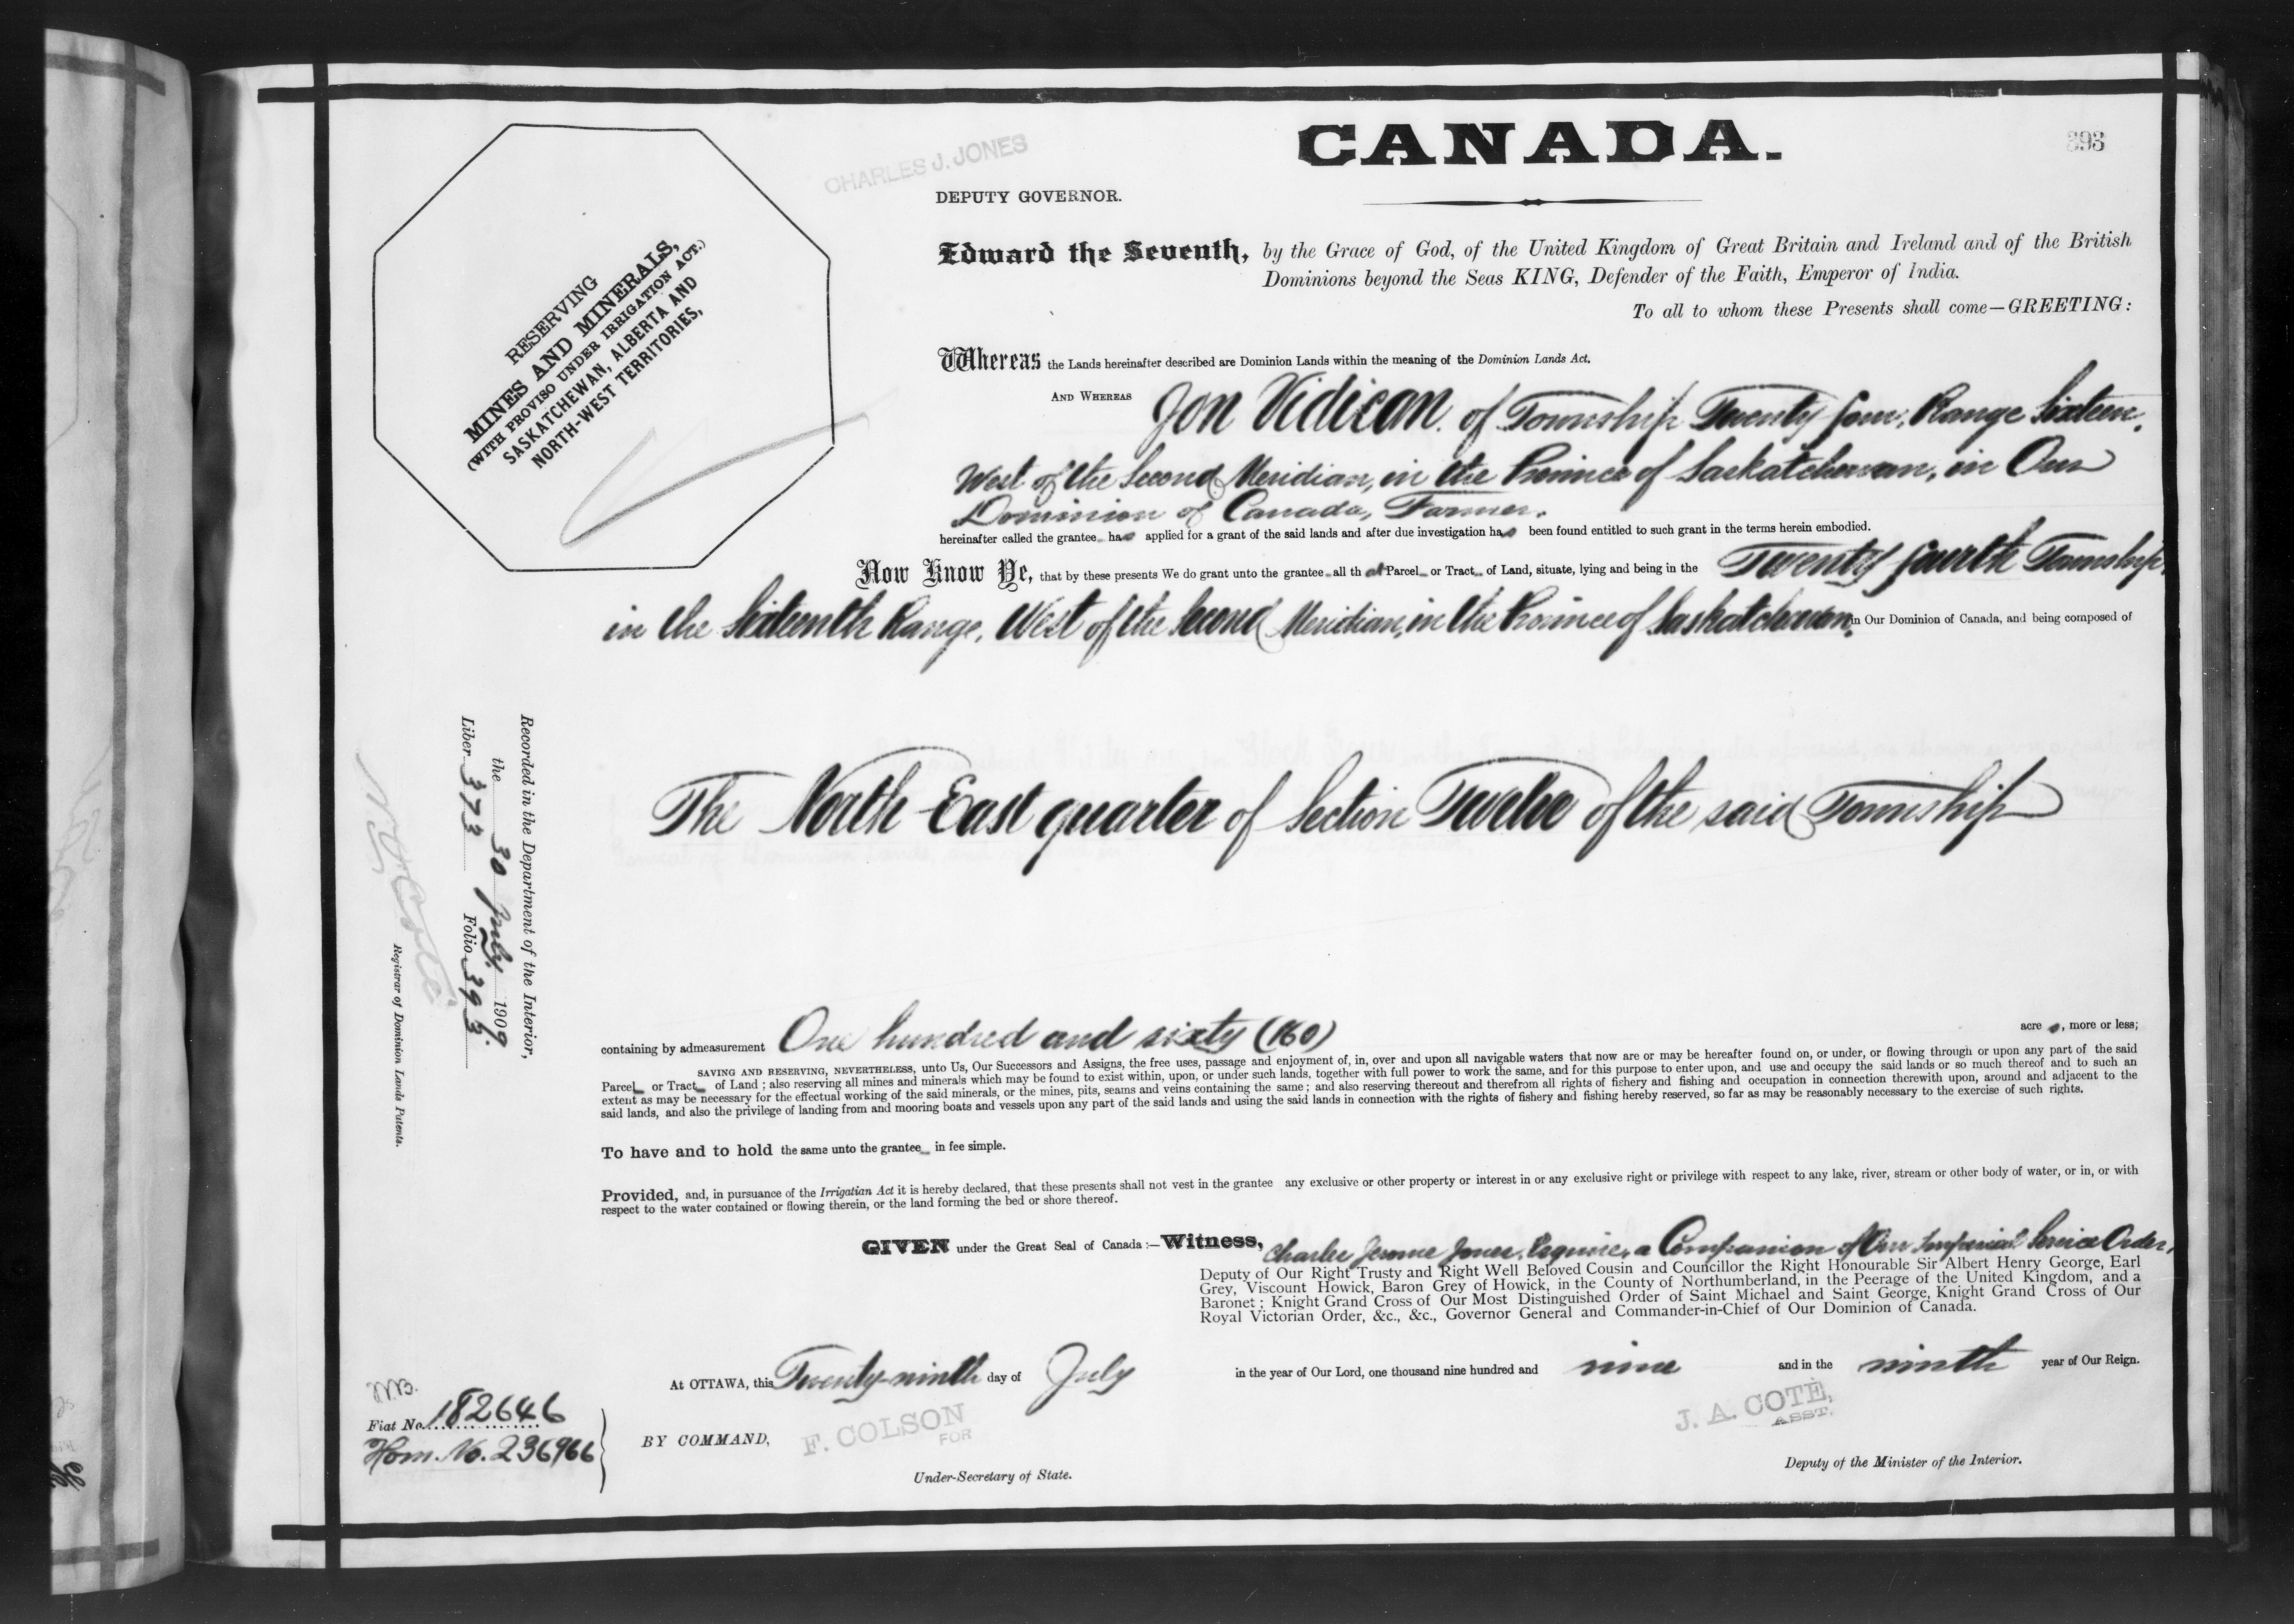 CANADA.
393
CHARLES J. JONES
DEPUTY GOVERNOR.
RESERVING
MINES AND MINERALS,
(WITH PROVISO UNDER IRRIGATION ACT.)
SASKATCHEWAN, ALBERTA AND
NORTH-WEST TERRITORIES,
Edward the Seventh, by the Grace of God, of the United Kingdom of Great Britain and Ireland and of the British
Dominions beyond the Seas KING, Defender of the Faith, Emperor of India.
To all to whom these Presents shall come—GREETING:
Whereas the Lands hereinafter described are Dominion Lands within the meaning of the Dominion Lands Act.
AND WHEREAS Jon Vidican of Township Twenty four, Range Sixteen,
West of the Second Meridian, in the Province of Saskatchewan, in Our
Dominion of Canada, Farmer.
hereinafter called the grantee has applied for a grant of the said lands and after due investigation has been found entitled to such grant in the terms herein embodied.
Now Know Ye, that by these presents We do grant unto the grantee all that Parcel or Tract of Land, situate, lying and being in the Twenty fourth Township,
in the Sixteenth Range, West of the Second Meridian, in the Province of Saskatchewan, in Our Dominion of Canada, and being composed of
The North East quarter of Section Twelve of the said Township
containing by admeasurement One hundred and sixty (160) acres, more or less;
SAVING AND RESERVING, NEVERTHELESS, unto Us, Our Successors and Assigns, the free uses, passage and enjoyment of, in, over and upon all navigable waters that now are or may be hereafter found on, or under, or flowing through or upon any part of the said
Parcel or Tract of Land ; also reserving all mines and minerals which may be found to exist within, upon, or under such lands, together with full power to work the same, and for this purpose to enter upon, and use and occupy the said lands or so much thereof and to such an
extent as may be necessary for the effectual working of the said minerals, or the mines, pits, seams and veins containing the same ; and also reserving thereout and therefrom all rights of fishery and fishing and occupation in connection therewith upon, around and adjacent to the
said lands, and also the privilege of landing from and mooring boats and vessels upon any part of the said lands and using the said lands in connection with the rights of fishery and fishing hereby reserved, so far as may be reasonably necessary to the exercise of such rights.
To have and to hold the same unto the grantee in fee simple.
Provided, and, in pursuance of the Irrigatian Act it is hereby declared, that these presents shall not vest in the grantee any exclusive or other property or interest in or any exclusive right or privilege with respect to any lake, river, stream or other body of water, or in, or with
respect to the water contained or flowing therein, or the land forming the bed or shore thereof.
GIVEN under the Great Seal of Canada :—Witness, Charles Jerome Jones, Esquire, a Companion of Our Imperial Service Order,
Deputy of Our Right Trusty and Right Well Beloved Cousin and Councillor the Right Honourable Sir Albert Henry George, Earl
Grey, Viscount Howick, Baron Grey of Howick, in the County of Northumberland, in the Peerage of the United Kingdom, and a
Baronet ; Knight Grand Cross of Our Most Distinguished Order of Saint Michael and Saint George, Knight Grand Cross of Our
Royal Victorian Order, &c., &c., Governor General and Commander-in-Chief of Our Dominion of Canada.
At OTTAWA, this Twenty-ninth day of July in the year of Our Lord, one thousand nine hundred and nine and in the ninth year of Our Reign.
BY COMMAND,
F. COLSON
FOR
Under-Secretary of State.
J. A. COTÉ,
ASST.
Deputy of the Minister of the Interior.
Fiat No. 182646
Hom. No. 236966
Recorded in the Department of the Interior,
the 30 July 1909.
Liber 373 Folio 393
N. O. Coté
Registrar of Dominion Lands Patents.